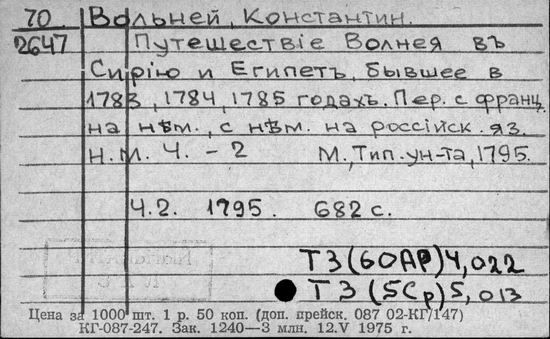 70
2647
Вольней, Константин.
Путешествіе Волнея въ
Сирію и Египетъ, бывшее в
1783, 1784, 1785 годахъ. Пер. с франц.
на нѣм., с нѣм. на россійск. яз.
Н.М. Ч. - 2 М., Тип. ун-та, 1795.
Ч.2. 1795. 682 с.
ТЗ(6ОАР)4,022
ТЗ(5Ср)5,013
Цена за 1000 шт. 1 р. 50 коп. (доп. прейск. 087 02-КГ/147)
КГ-087-247. Зак. 1240—3 млн. 12.V 1975 г.